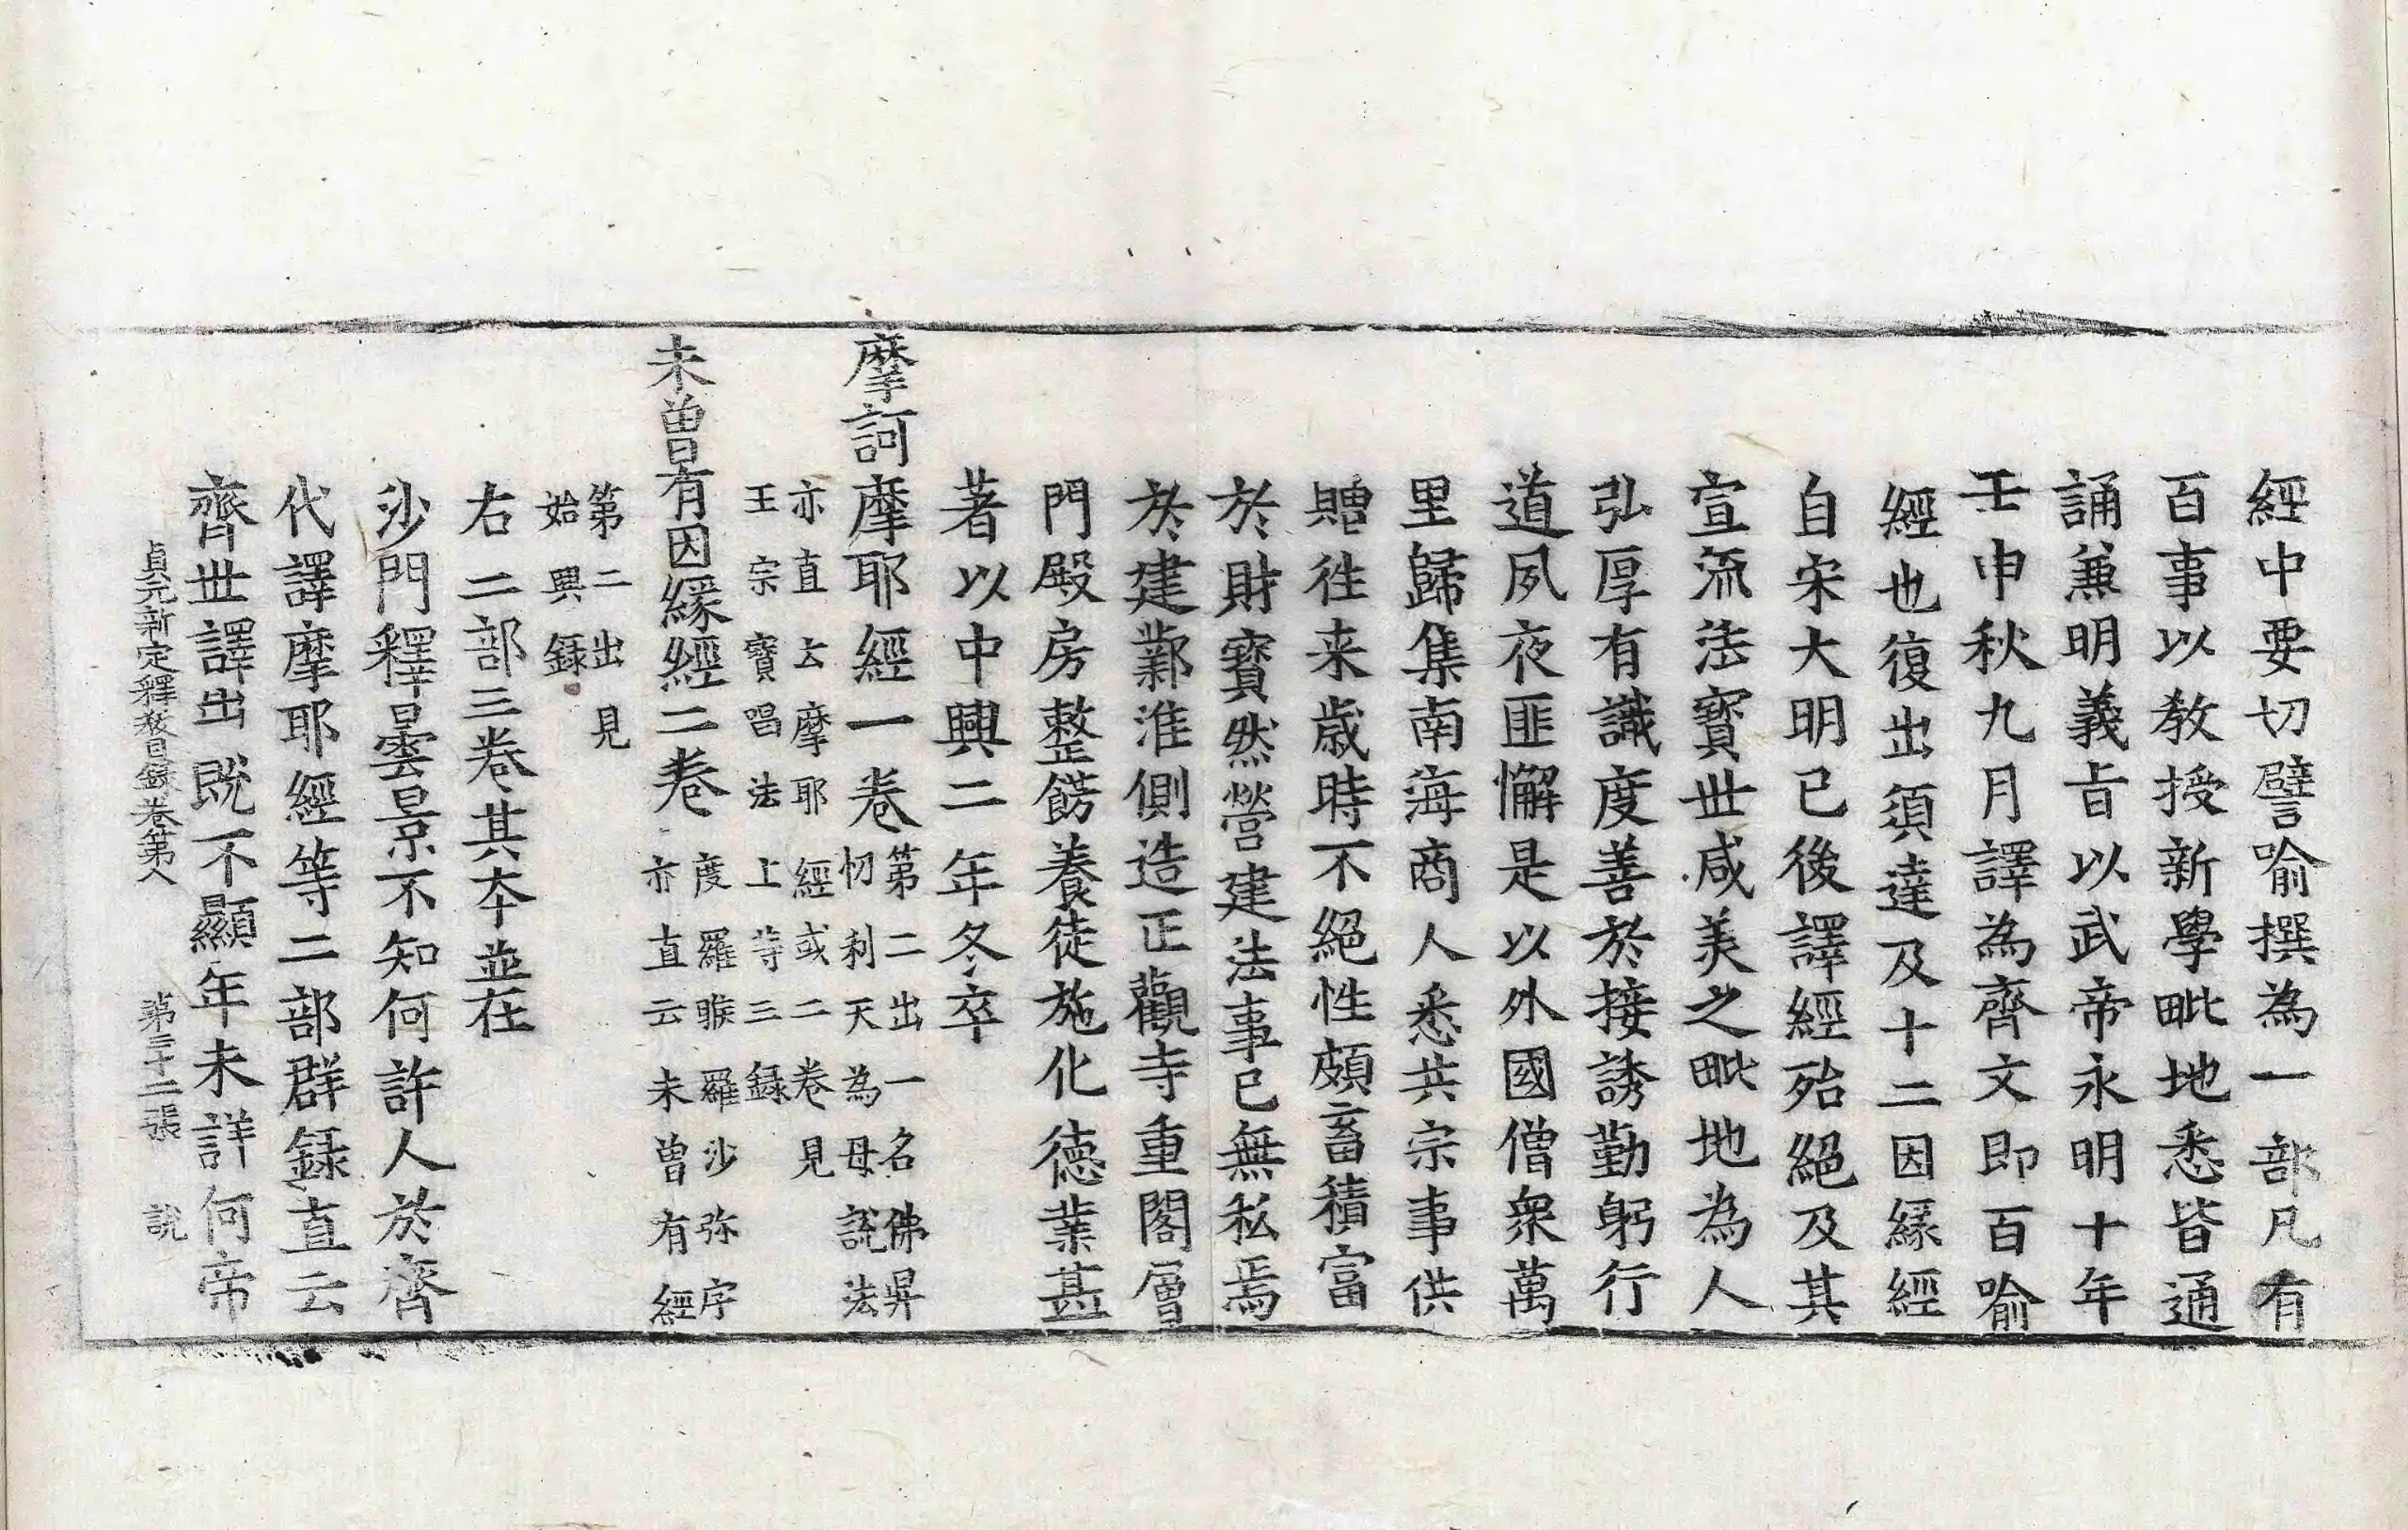 經中要切譬喻撰為一部凡有
百事以教授新學毗地悉皆通
誦兼明義旨以武帝永明十年
壬申秋九月譯為齊文即百喻
經也復出須達及十二因緣經
自宋大明已後譯經殆絕及其
宣流法寶世咸美之毗地為人
弘厚有識度善於接誘勤躬行
道夙夜匪懈是以外國僧衆萬
里歸集南海商人悉共宗事供
贈往来歲時不絕性頗畜積富
於財寶然營建法事已無私焉
於建鄴淮側造正觀寺重閣層
門殿房整餝養徒施化德業甚
著以中興二年冬卒
摩訶摩耶經一卷第二出一名佛昇
忉利天為母說法
亦直云摩耶經或二卷見
王宗寶唱法上等三録
未曾有因緣經二卷度羅睺羅沙弥序
亦直云未曾有經
第二出見
始興録
右二部三卷其本並在
沙門釋曇景不知何許人於齊
代譯摩耶經等二部群録直云
齊世譯出既不顯年未詳何帝
貞元新定釋教目録卷第八 第三十二張 說